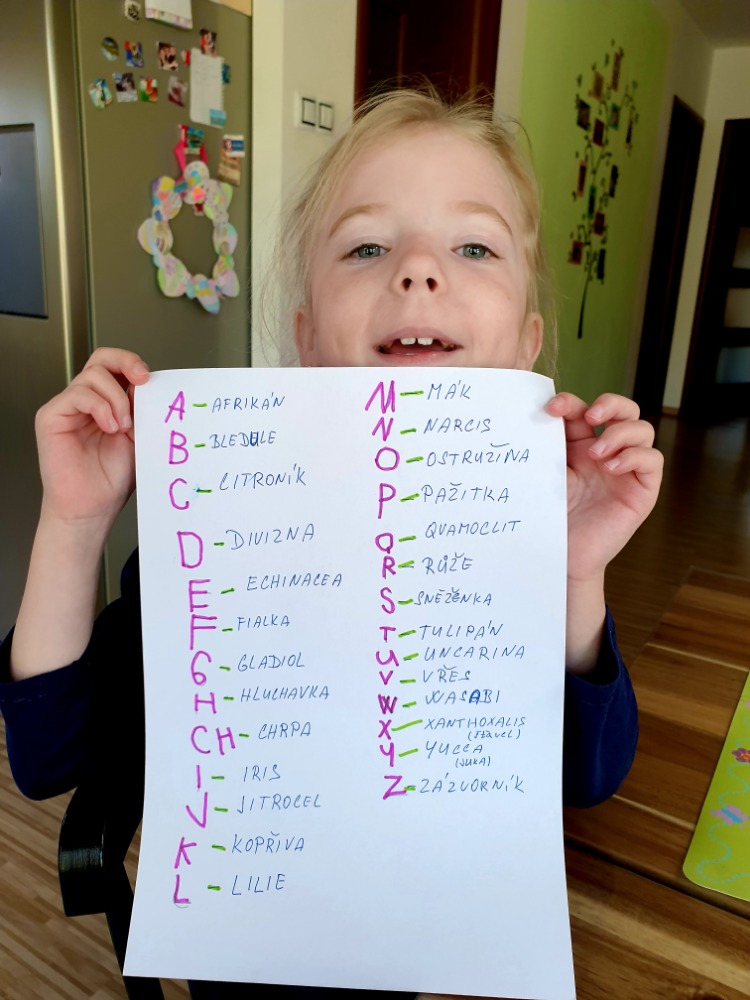 A - AFRIKÁN
B - BLEDULE
C - CITRONÍK
D - DIVIZNA
E - ECHINACEA
F - FIALKA
G - GLADIOL
H - HLUCHAVKA
CH - CHRPA
I - IRIS
J - JITROCEL
K - KOPŘIVA
L - LILIE
M - MÁK
N - NARCIS
O - OSTRUŽINA
P - PAŽITKA
Q - QVAMOCLIT
R - RŮŽE
S - SNĚŽENKA
T - TULIPÁN
U - UNCARINA
V - VŘES
W - WASABI
X - XANTHOXALIS
(ŠŤAVEL)
Y - YUCCA
(JUKA)
Z - ZÁZVORNÍK